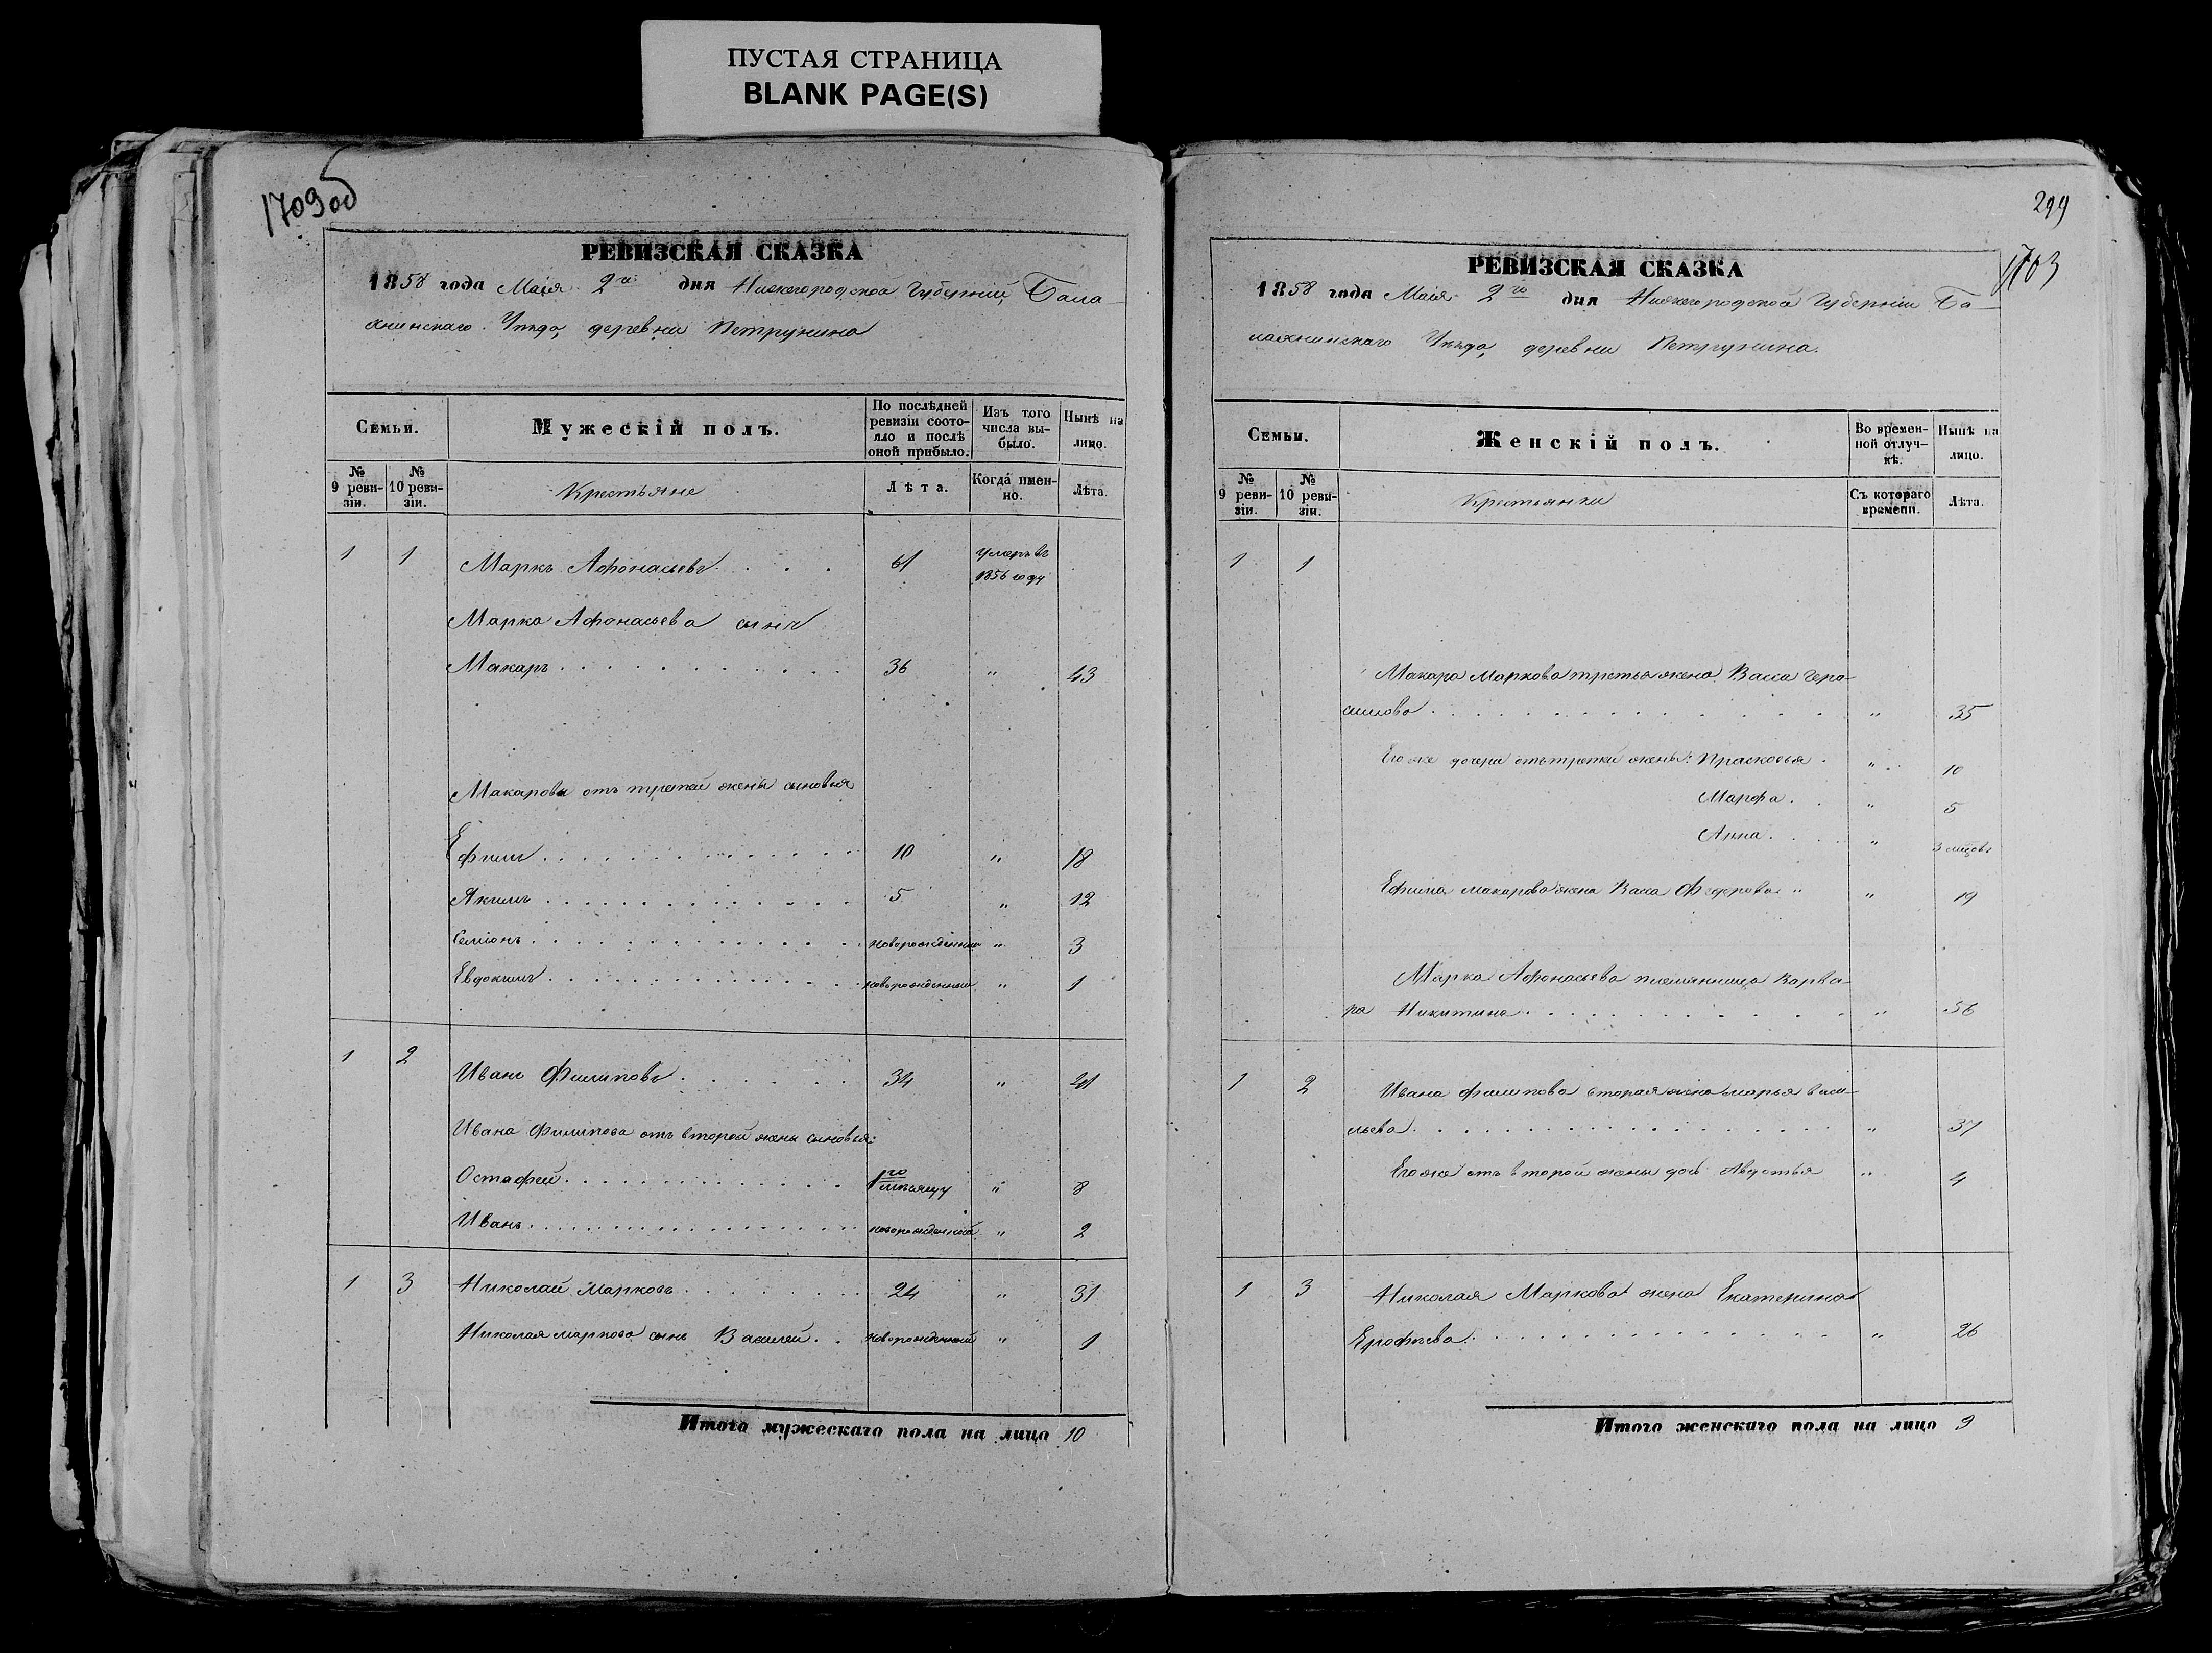 ПУСТАЯ СТРАНИЦА
BLANK PAGE(S)
1709 об
РЕВИЗСКАЯ СКАЗКА
1858 года Маія 2го дня Нижегородской Губерніи Бала-
хнинскаго Уѣзда, деревни Петрунина
Семьи.
Мужескій полъ.
По послѣдней ревизіи состояло и послѣ оной прибыло.
Изъ того числа выбыло.
Нынѣ на лицо.
№ 9 ревизіи.
№ 10 ревизіи.
Крестьяне
Лѣта.
Когда именно.
Лѣта.
1 1 Маркъ Афонасьевъ . . . . 61 умеръ въ 1856 году
Марка Афонасьева сынъ
Макаръ . . . . 36 " 43
Макаровы отъ третей жены сыновья
Ефимъ . . . . 10 " 18
Якимъ . . . . 5 " 12
Семіонъ . . . . новорожденный " 3
Евдокимъ . . . . новорожденный " 1
1 2 Иванъ Филиповъ . . . . 34 " 41
Ивана Филипова отъ второй жены сыновья:
Остафей . . . . 1го мѣсяцу " 8
Иванъ . . . . новорожденный " 2
1 3 Николай Марковъ . . . . 24 " 31
Николая Маркова сынъ Василей . . новорожденный " 1
Итого мужескаго пола на лицо 10
299
1703
РЕВИЗСКАЯ СКАЗКА
1858 года Маія 2го дня Нижегородской Губерніи Ба-
лахнинскаго Уѣзда, деревни Петрунина.
Семьи.
Женскій полъ.
Во временной отлучкѣ.
Нынѣ на лицо.
№ 9 ревизіи.
№ 10 ревизіи.
Крестьянки
Съ котораго времени.
Лѣта.
1 1
Макара Маркова третья жена Васса Гера-
симова . . . . " 35
Его же дочери отъ третей жены: Прасковья . " 10
Марфа . . " 5
Анна . . . " 3 мѣсцовъ
Ефима Макарова жена Васса Федорова " " 19
Марка Афонасьева племянница Варва-
ра Никитина . . . . " 56
1 2 Ивана Филипова вторая жена Марья Васи-
льева . . . . " 37
Его же отъ второй жены дочь Авдотья " 4
1 3 Николая Маркова жена Екатерина
Ерофѣева . . . . " 26
Итого женскаго пола на лицо 9